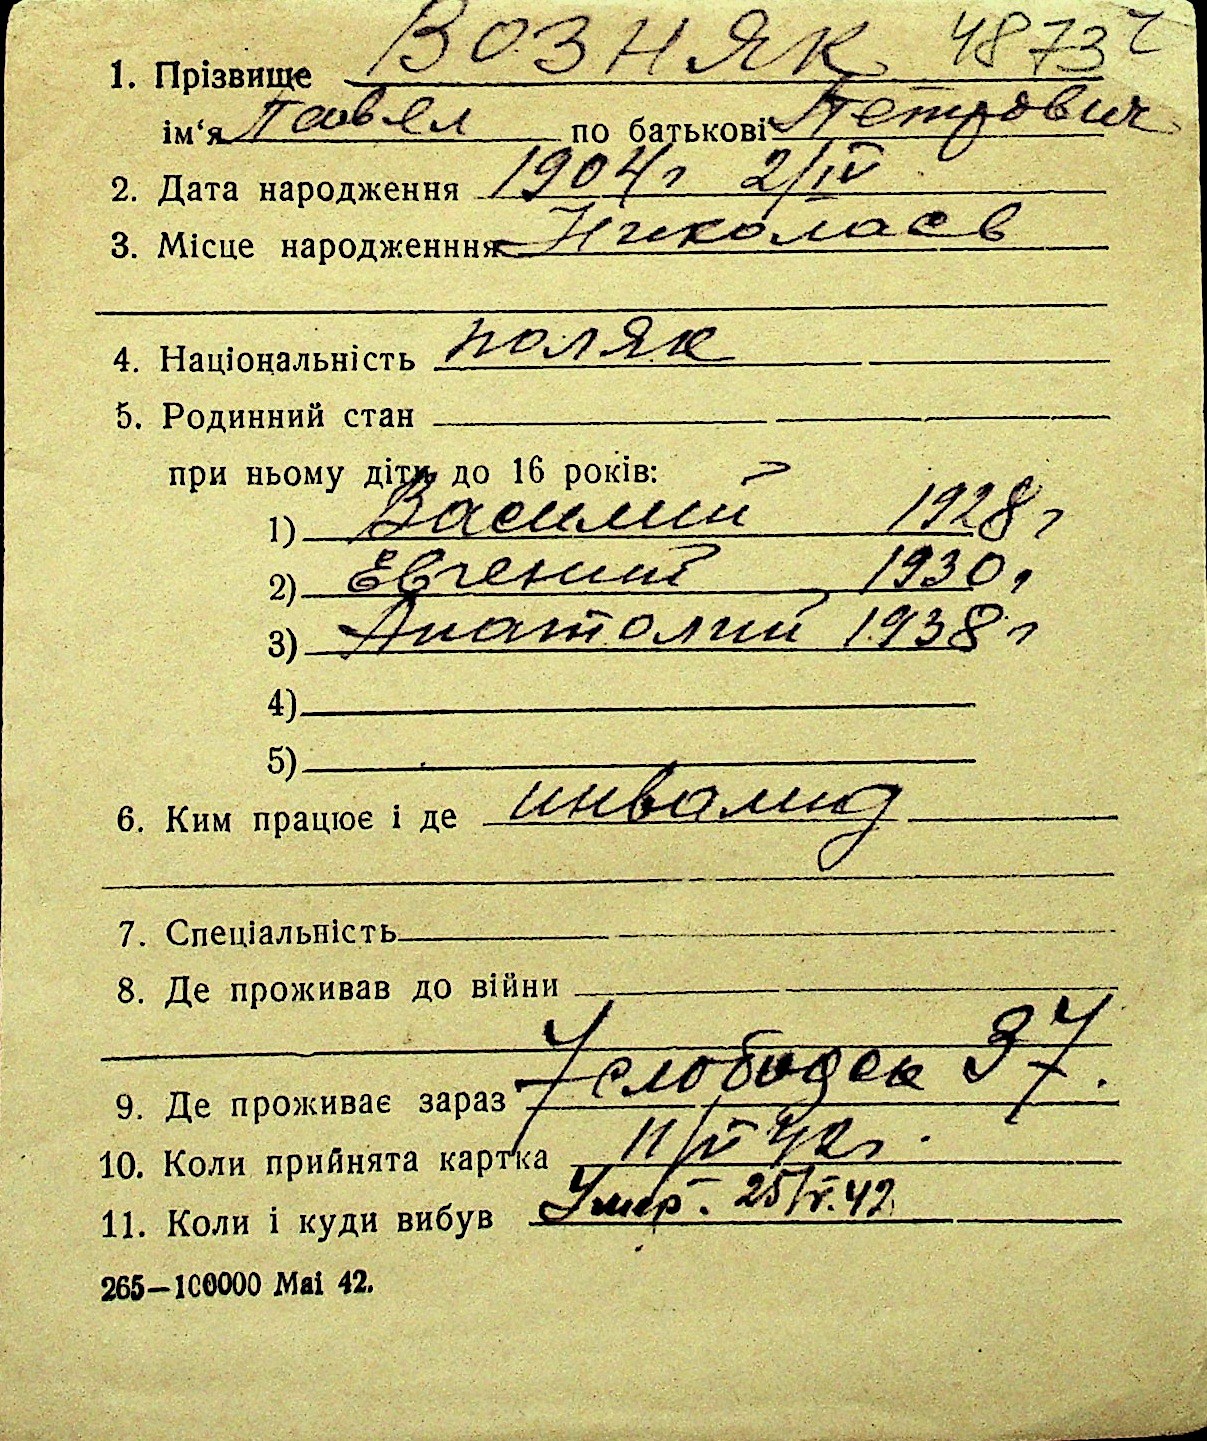 1. Прізвище ВОЗНЯК 4873
ім‘я Павел по батькові Петрович
2. Дата народження 1904 г 2/IV
3. Місце народженння Николаев
4. Національність поляк
5. Родинний стан
при ньому діти до 16 років:
1) Василий 1928 г
2) Евгений 1930 г
3) Анатолий 1938 г
4)
5)
6. Ким працює і де инвалид
7. Спеціальність
8. Де проживав до війни
9. Де проживає зараз 7 слободск 37.
10. Коли прийнята картка 11/VI 42 г.
11. Коли і куди вибув Умер. 25/V.42
265—100000 Mai 42.